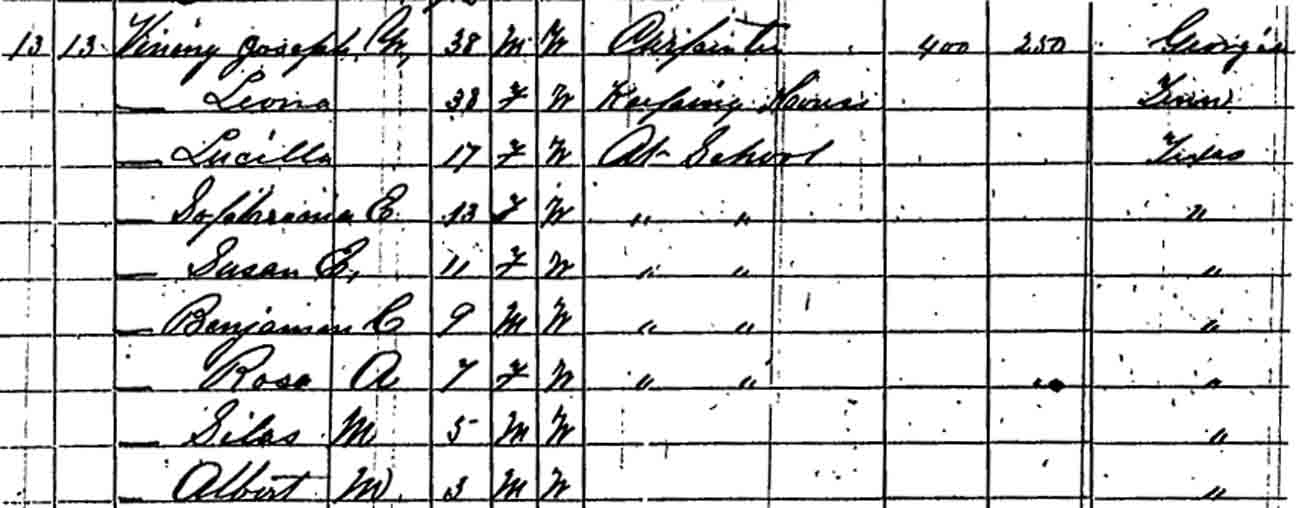 13 13 Vining Joseph W, 38 M W Carpenter 400 250 Georgia
— Leona 38 F W Keeping House Tenn
— Lucilla 17 F W At School Texas
— Sophronia E. 13 F W " " "
— Susan E, 11 F W " " "
— Benjamin C 9 M W " " "
— Rosa A 7 F W " " "
— Silas M 5 M W "
— Albert M 3 M W "